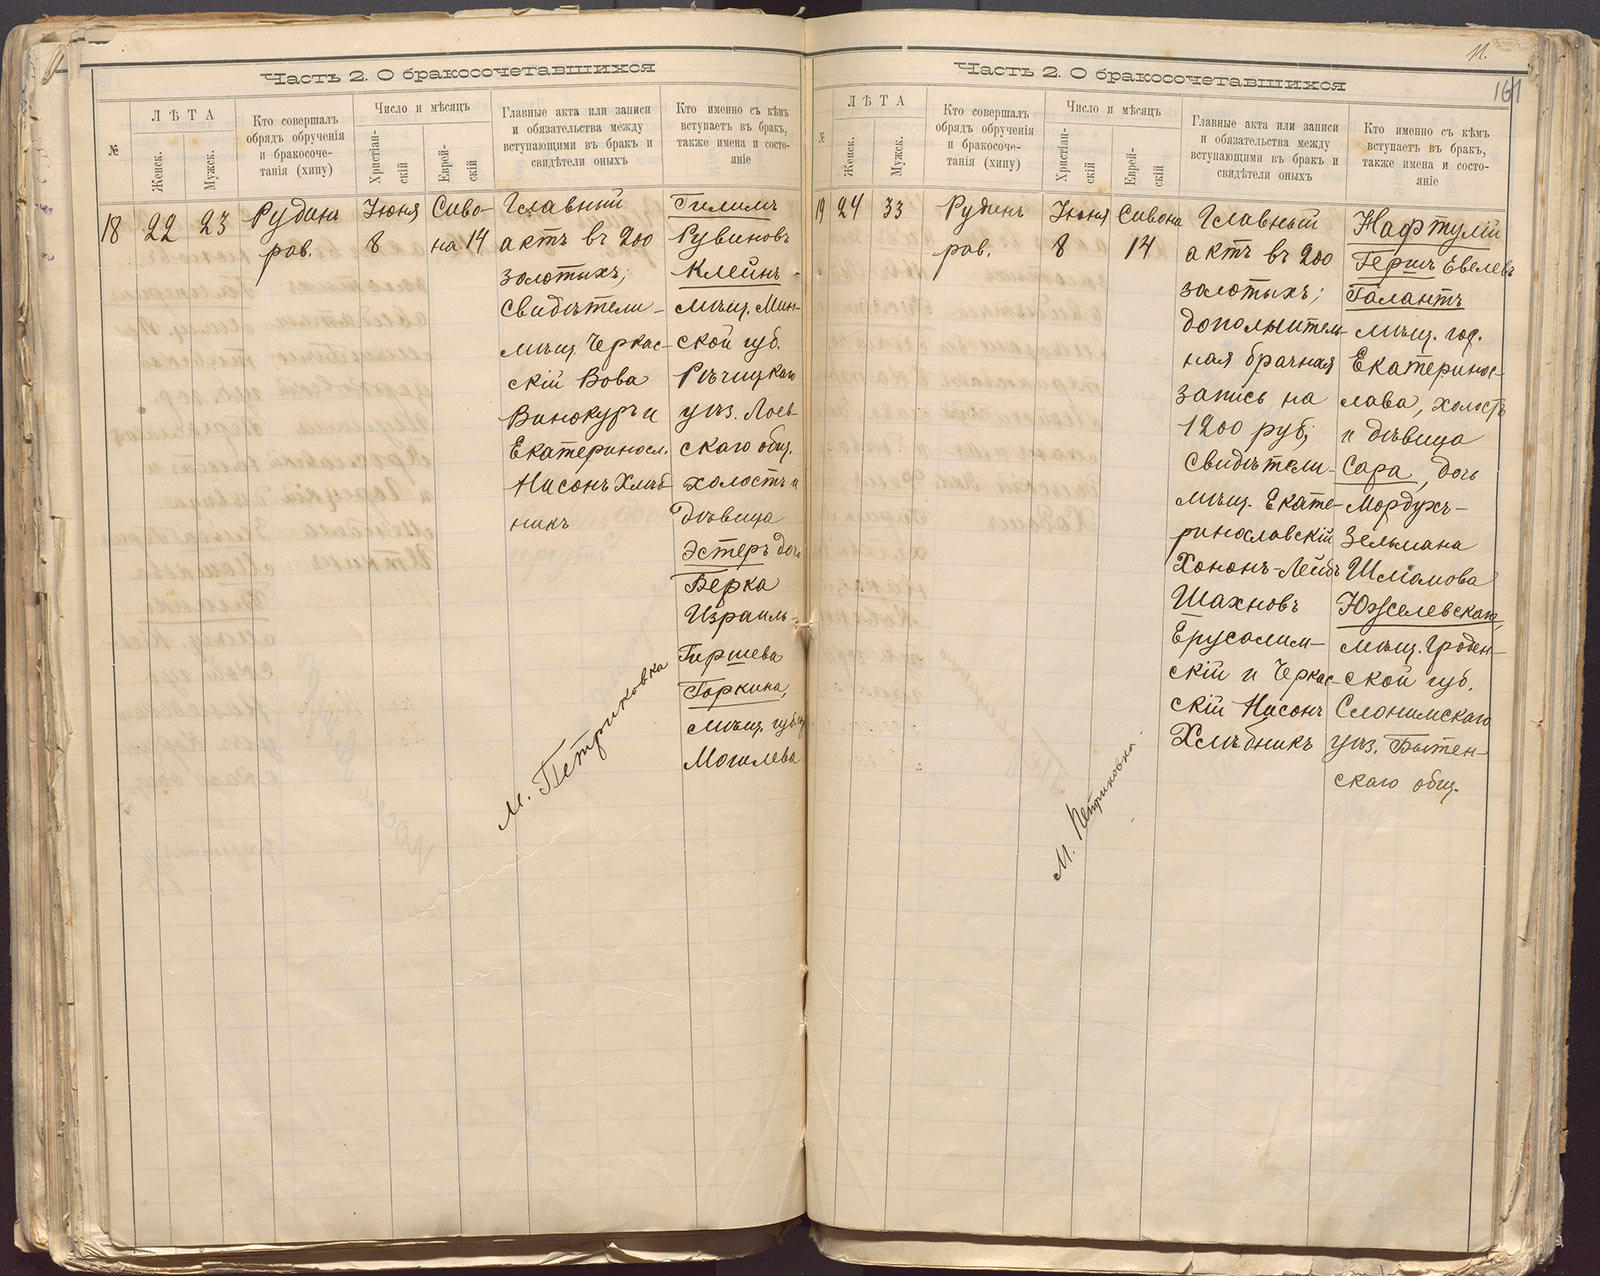 Часть 2. О бракосочетавшихся
№
ЛѢТА
Женск.
Мужск.
Кто совершалъ
обрядъ обрученія
и бракосоче-
танія (хипу)
Число и мѣсяцъ
Христіан-
скій
Еврей-
скій
Главные акта или записи
и обязательства между
вступающими въ бракъ и
свидѣтели оныхъ
Кто именно съ кѣмъ
вступаетъ въ бракъ,
также имена и состо-
яніе
18
22
23
Рудинъ
рав.
Іюня
8
Сиво-
на 14
Главный
актъ въ 200
золотыхъ;
свидѣтели -
мѣщ. Черкас-
скій Вова
Винокуръ и
Екатериносл.
Нисонъ Хлѣб-
никъ
Гилимъ
Рувиновъ
Клейнъ -
мѣщ. Мин-
ской губ.
Рѣчицкаго
уѣз. Лоев-
скаго общ.
холостъ и
дѣвица
Эстеръ дочь
Берка
Израиль-
Гиршева
Горкина,
мѣщ. губ. г.
Могилева
м. Петриковка
Часть 2. О бракосочетавшихся
11.
161
№
ЛѢТА
Женск.
Мужск.
Кто совершалъ
обрядъ обрученія
и бракосоче-
танія (хипу)
Число и мѣсяцъ
Христіан-
скій
Еврей-
скій
Главные акта или записи
и обязательства между
вступающими въ бракъ и
свидѣтели оныхъ
Кто именно съ кѣмъ
вступаетъ въ бракъ,
также имена и состо-
яніе
19
24
33
Рудинъ
рав.
Іюня
8
Сивона
14
Главный
актъ въ 200
золотыхъ;
дополнитель-
ная брачная
запись на
1200 руб;
свидѣтели -
мѣщ. Екате-
ринославскій
Хононъ-Лейбъ
Шахновъ
Ерусалим-
скій и Черкас-
скій Нисонъ
Хлѣбникъ
Нафтулій
Гершъ Евелевъ
Галантъ
мѣщ. гор.
Екатеринос-
лава, холостъ
и дѣвица
Сара, дочь
Мордухъ-
Зельмана
Шліомова
Южелевскаго,
мѣщ. Гроден-
ской губ.
Слонимскаго
уѣз. Бытен-
скаго общ.
М. Петриковка.